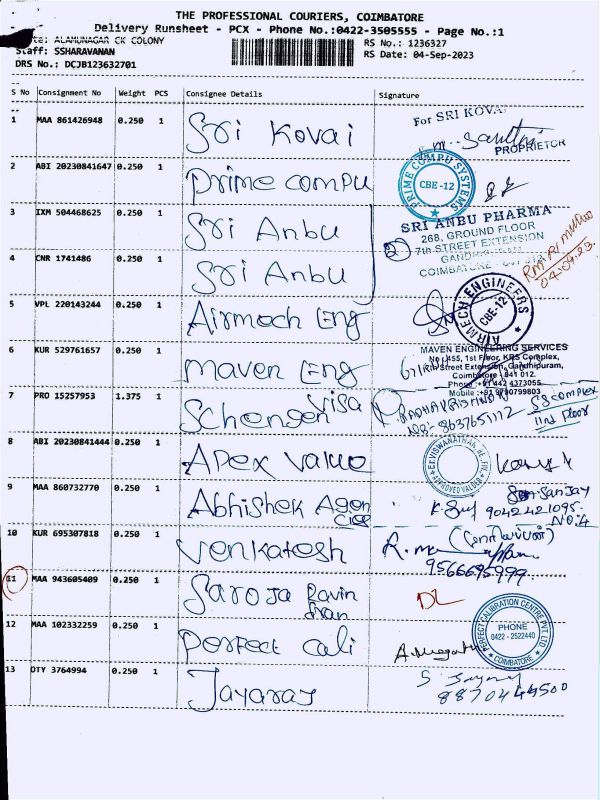 THE PROFESSIONAL COURIERS, COIMBATORE
Delivery Runsheet - PCX - Phone No.:0422-3505555 - Page No.:1
ALAMUNAGAR CK COLONY
RS No.: 1236327
Staff: SSHARAVANAN
RS Date: 04-Sep-2023
DRS No.: DCJB123632701
S No Consignment No Weight PCS Consignee Details Signature
1 MAA 861426948 0.250 1 Sri Kovai
For SRI KOVAI
PROPRIETOR
2 ABI 20230841647 0.250 1 Prime compu
PRIME COMPU SYSTEMS
CBE -12
3 IXM 504468625 0.250 1 Sri Anbu
SRI ANBU PHARMA
268, GROUND FLOOR
7th STREET EXTENSION
4 CNR 1741486 0.250 1 Sri Anbu
COIMBATORE
04.09.23
5 VPL 220143244 0.250 1 Airmech Eng
AIRMECH ENGINEERS
CBE-12
6 KUR 529761657 0.250 1 Maven Eng
MAVEN ENGINEERING SERVICES
No.455, 1st Floor, KRS Complex,
Street Extension, Gandhipuram,
Coimbatore 641 012.
Phone :+91 442 4373055
Mobile :+91 9790799803
7 PRO 15257953 1.375 1 Schengen Visa
8637651112
SS complex
IInd Floor
8 ABI 20230841444 0.250 1 Apex Value
APPROVED VALUER
9 MAA 860732770 0.250 1 Abhishek Agencies
Sanjay
9042421095
No:4
10 KUR 695307818 0.250 1 Venkatesh
9566695999
11 MAA 943605409 0.250 1 Saroja Ravin
DL
12 MAA 102332259 0.250 1 Perfect Cali
PERFECT CALIBRATION CENTRE PVT LTD
PHONE
0422 - 2522440
COIMBATORE
13 OTY 3764994 0.250 1 Jayaraj
8870444500